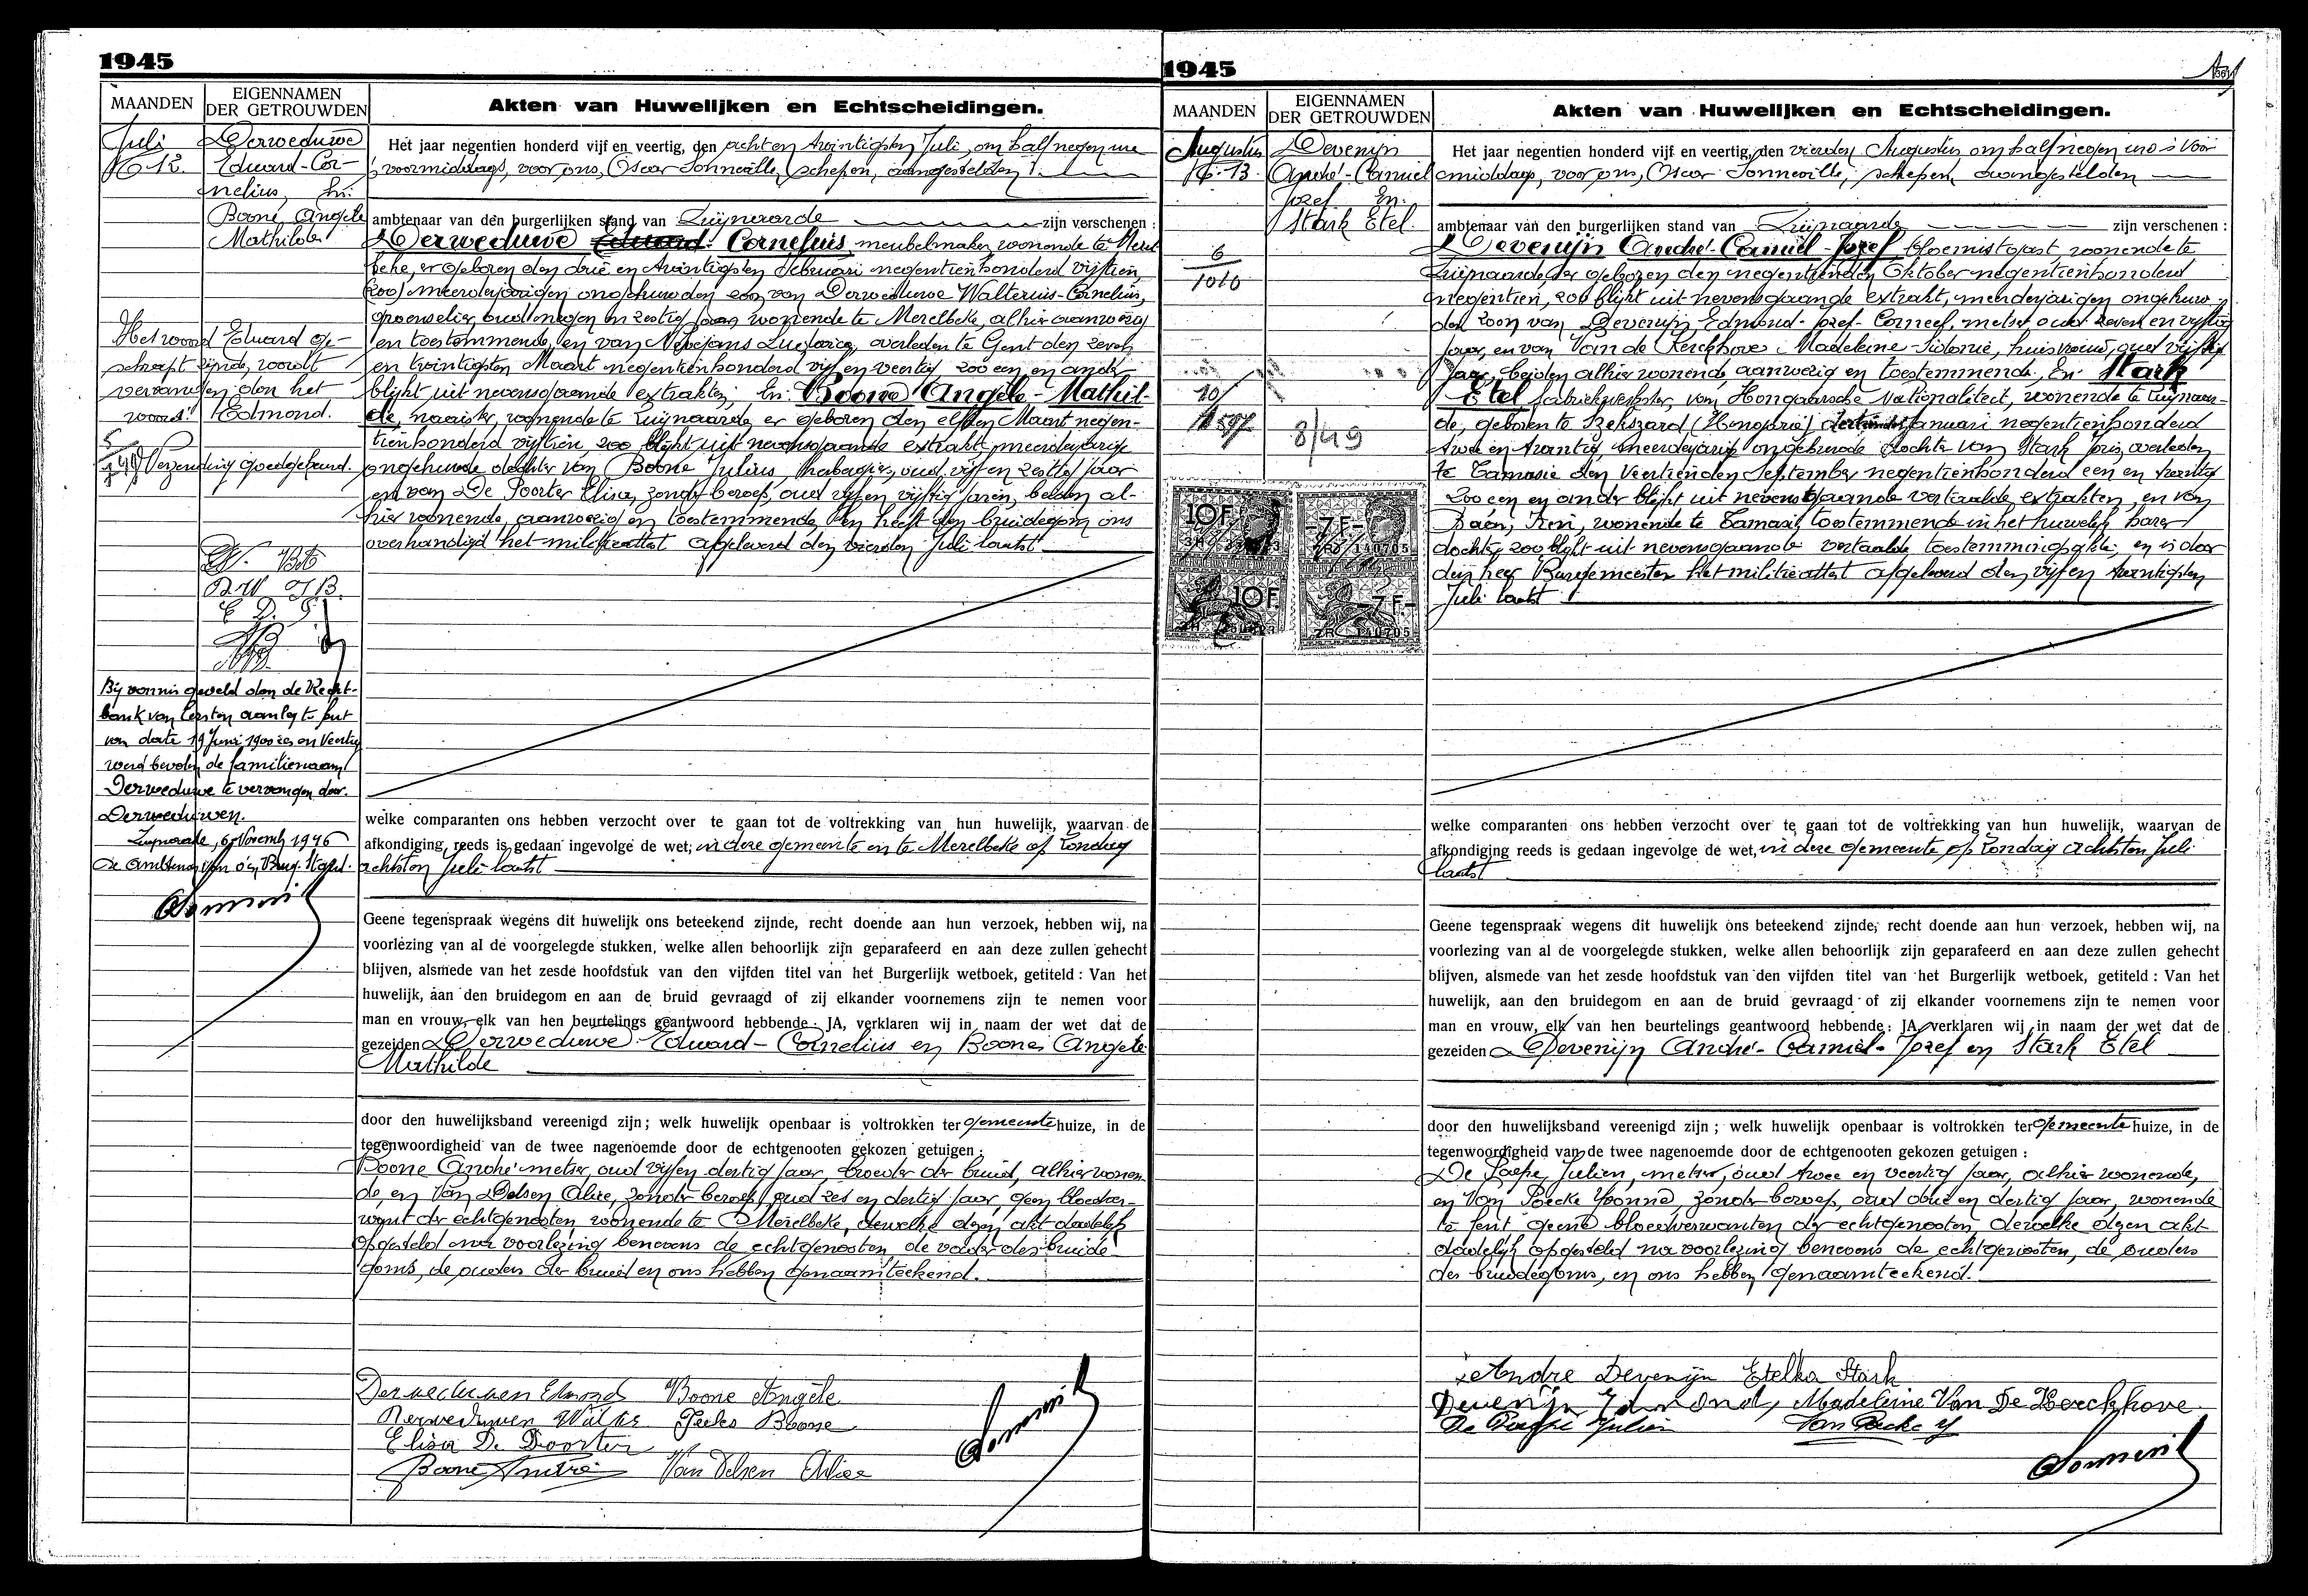 1945
MAANDEN
EIGENNAMEN
DER GETROUWDEN
Akten van Huwelijken en Echtscheidingen.
Juli
N. 12.
Derweduwe
Eduard-Cor-
nelius, En:
Boone Angele
Mathilde
Het woord Eduard ge-
schrapt zijnde, wordt
vervangen door het
woord: Edmond.
Verzending goedgekeurd.
Bij vonnis geveld door de Recht-
bank van Eersten aanleg te Gent
van date 19 Juni 1900 zes en Veertig
werd bevolen de familienaam
Derweduwe te vervangen door.
Derweduwen.
Zwijnaarde, 6 November 1946
De Ambtenaar van den Burg. Stand.
Het jaar negentien honderd vijf en veertig, den acht en twintigsten Juli, om half negen ure
's voormiddags, voor ons, Oscar Sonneville, schepen, aangestelden
ambtenaar van den burgerlijken stand van Zwijnaarde zijn verschenen :
Derweduwe Eduard-Cornelius, meubelmaker, wonende te Merel
beke, er geboren den drie en twintigsten Februari negentienhonderd vijftien,
zoo) meerderjarigen ongehuwden zoon van Derweduwe Walterius-Cornelius,
groenselier, oud negen en zestig jaar, wonende te Merelbeke, alhier aanwezig
en toestemmende, en van Ludovica, overleden te Gent den zeven
en twintigsten Maart negentienhonderd vijf en veertig, zoo een en ander
blijkt uit nevensgaande extrakten; En: Boone Angèle-Mathil-
de, naaister, wonende te Zwijnaarde, er geboren den elfden Maart negen-
tienhonderd vijftien, zoo blijkt uit nevensgaande extrakt, meerderjarige
ongehuwde dochter van Boone Julius, oud vijf en zestig jaar
en van De Poorter Elisa, zonder beroep, oud vijf en vijftig jaren, beiden al-
hier wonende, aanwezig en toestemmende, en heeft den bruidegom ons
overhandigd het militieattest afgeleverd den vierden Juli laatst
welke comparanten ons hebben verzocht over te gaan tot de voltrekking van hun huwelijk, waarvan de
afkondiging reeds is gedaan ingevolge de wet, in deze gemeente en te Merelbeke op Zondag
achtsten Juli laatst
Geene tegenspraak wegens dit huwelijk ons beteekend zijnde, recht doende aan hun verzoek, hebben wij, na
voorlezing van al de voorgelegde stukken, welke allen behoorlijk zijn geparafeerd en aan deze zullen gehecht
blijven, alsmede van het zesde hoofdstuk van den vijfden titel van het Burgerlijk wetboek, getiteld : Van het
huwelijk, aan den bruidegom en aan de bruid gevraagd of zij elkander voornemens zijn te nemen voor
man en vrouw, elk van hen beurtelings geantwoord hebbende : JA, verklaren wij in naam der wet dat de
gezeiden Derweduwe Eduard-Cornelius en Boone Angele
Mathilde
door den huwelijksband vereenigd zijn ; welk huwelijk openbaar is voltrokken ter gemeente huize, in de
tegenwoordigheid van de twee nagenoemde door de echtgenooten gekozen getuigen :
Boone André metser, oud vijf en dertig jaar, broeder der bruid, alhier wonen
de, en Van Delsen Alice, zonder beroep, oud zes en dertig jaar, geen bloedver-
want der echtgenooten, wonende te Merelbeke, dewelke dezen akt dadelijk
opgesteld na voorlezing benevens de echtgenooten, de vader des bruide
goms, de ouders der bruid en ons hebben genaamteekend.
Derweduwen Edmond Boone Angèle
Derweduwen Walter Jules Boone
Elisa De Poorter
Boone André Van Delsen Alice
1945
MAANDEN
EIGENNAMEN
DER GETROUWDEN
Akten van Huwelijken en Echtscheidingen.
Augustus
N. 13.
Devenijn
André-Camiel
Jozef En:
Stark Etel.
6
1010
10
8/49
10F.
-7 F.-
140705
10F.
-7 F.-
140705
Het jaar negentien honderd vijf en veertig, den vierden Augustus om half negen ure 's voor
middags, voor ons, Oscar Sonneville, schepen, aangestelden
ambtenaar van den burgerlijken stand van Zwijnaarde zijn verschenen :
Devenijn André-Camiel-Jozef, bloemistgast, wonende te
Zwijnaarde, er geboren den negentienden Oktober negentienhonderd
negentien, zoo blijkt uit nevensgaande extrakt, meerderjarigen ongehuw
den zoon van Devenijn Edmond-Jozef-Corneel, metser, oud zeven en vijftig
jaar, en van Van de Kerckhove Madeleine-Sidonie, huisvrouw, oud vijftig
jaar, beiden alhier wonende, aanwezig en toestemmende, En: Stark
Etel fabriekwerkster, van Hongaarsche nationaliteit, wonende te Zwijnaar-
de, geboren te Szekszard (Hongarie) Januari negentienhonderd
twee en twintig, meerderjarige ongehuwde dochter van Stark overleden
te Tamasie den veertienden September negentienhonderd een en twintig
zoo een en ander blijkt uit nevensgaande vertaalde extrakten, en van
wonende te Tamasi, toestemmende in het huwelijk harer
dochter, zoo blijkt uit nevensgaande vertaalde toestemmingsakte, en is door
den heer Burgemeester het militieattest afgeleverd den vijf en twintigsten
Juli laatst
welke comparanten ons hebben verzocht over te gaan tot de voltrekking van hun huwelijk, waarvan de
afkondiging reeds is gedaan ingevolge de wet, in deze gemeente op Zondag achtsten Juli
laatst
Geene tegenspraak wegens dit huwelijk ons beteekend zijnde, recht doende aan hun verzoek, hebben wij, na
voorlezing van al de voorgelegde stukken, welke allen behoorlijk zijn geparafeerd en aan deze zullen gehecht
blijven, alsmede van het zesde hoofdstuk van den vijfden titel van het Burgerlijk wetboek, getiteld : Van het
huwelijk, aan den bruidegom en aan de bruid gevraagd of zij elkander voornemens zijn te nemen voor
man en vrouw, elk van hen beurtelings geantwoord hebbende : JA, verklaren wij in naam der wet dat de
gezeiden Devenijn André-Camiel-Jozef en Stark Etel
door den huwelijksband vereenigd zijn ; welk huwelijk openbaar is voltrokken ter gemeente huize, in de
tegenwoordigheid van de twee nagenoemde door de echtgenooten gekozen getuigen :
De Paepe Julien, metser, oud twee en veertig jaar, alhier wonende,
en Van Poecke Yvonne, zonder beroep, oud drie en dertig jaar, wonende
te Gent, geene bloedverwanten der echtgenooten, dewelke dezen akt
dadelijk opgesteld na voorlezing benevens de echtgenooten, de ouders
des bruidegoms, en ons hebben genaamteekend.
Andre Devenijn Etelka Stark
Devenijn Edmond, Madeleine Van De Kerckhove
De Paepe Julien Van Poecke Y